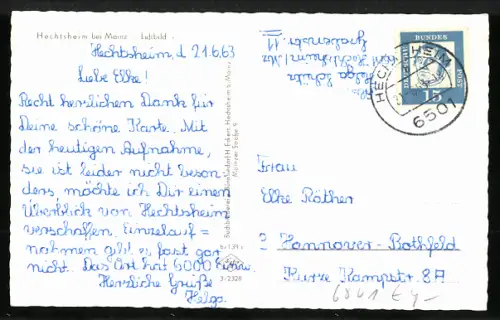 Hechtsheim bei Mainz - Luftbild -
Hechtsheim, d 21.6.63
Liebe Elke!
Recht herzlichen Dank für
Deine schöne Karte. Mit
der heutigen Aufnahme,
sie ist leider nicht beson-
ders möchte ich Dir einen
Überblick von Hechtsheim
verschaffen. Einzelauf=
nahmen gibt es fast gar
nicht. Das Ort hat 6000 Einw.
Herzliche Grüße
Helga.
Helga
Grabenstr. 11
DEUTSCHE BUNDESPOST
15
HECHTSHEIM
6501
Frau
Elke Röther
3 Hannover-Bothfeld
Kurze Kampstr. 8A